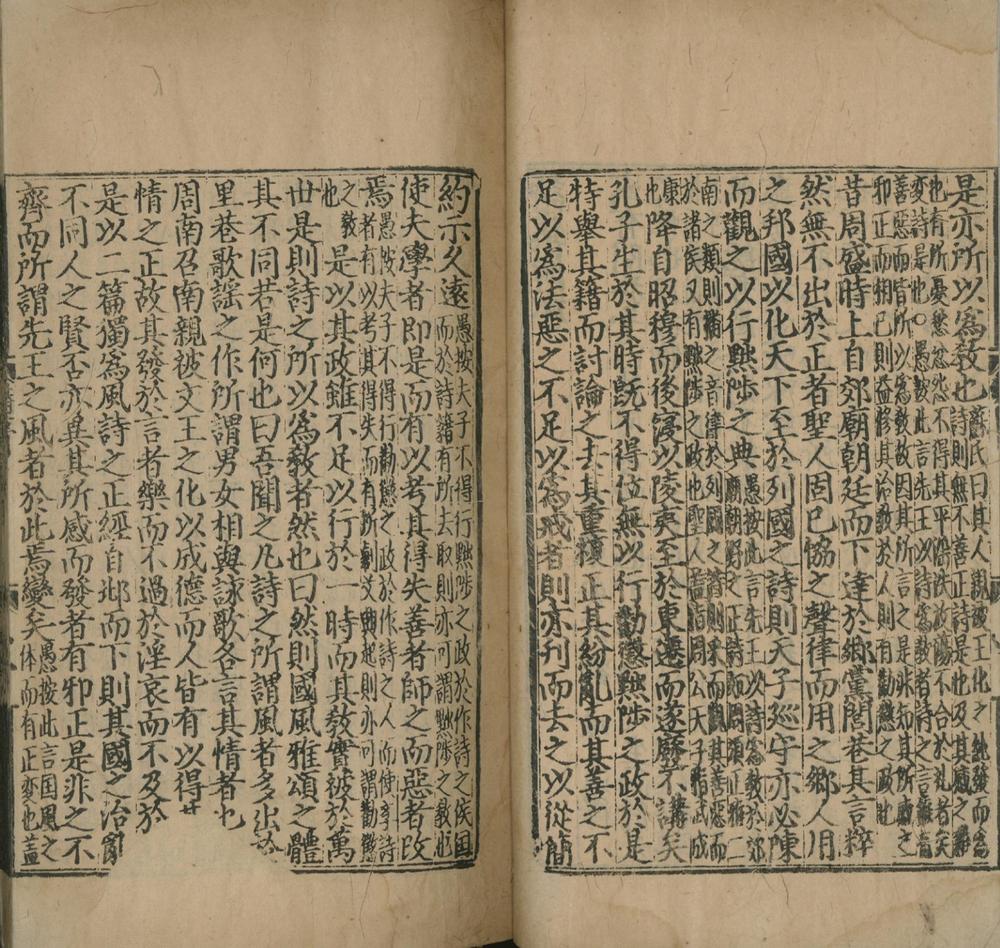 是亦所以爲教也
蘇氏曰其人親被王化之純發而爲
詩則無不善正詩是也及其感之雜
也有所憂愁忿怒不得其平
不合於禮者矣
變詩是也○愚按此言先王以詩爲教者詩之言雖有
善惡而皆所以爲教故因其所言之是非知其所感之
邪正而
已則益修其治教於人則有勸懲之政也
昔周盛時上自郊廟朝廷而下達於鄉黨閭巷其言粹
然無不出於正者聖人固已恊之聲律而用之鄉人用
之邦國以化天下至於列國之詩則天子廵守亦必陳
而觀之以行黜陟之典
愚按此言先王以詩爲教於郊
廟朝
之正詩
周頌正雅二
南之類則
之音律於列國之
詩則采而觀其善惡而
於諸侯又有黜陟之政也聖人盖指周公天子指武成
康
也
降自昭穆而後寖以陵夷至於東遷而遂廢不講矣
孔子生於其時旣不得位無以行勸懲黜陟之政於是
特舉其籍而討論之去其重複正其紛亂而其善之不
足以爲法惡之不足以爲戒者則亦刊而去之以從簡
約示久遠
愚按夫子不得行黜陟之政於作詩之侯國
而於詩諸有所去取則亦可謂黜陟之教也
使夫學者即是而有以考其得失善者師之而惡者改
焉
愚按夫子不得行勸懲之政於作詩之人而使學詩
者有以考其得失而有所創艾興起則亦可謂勸懲
之教
也
是以其政雖不足以行於一時而其教實被於萬
世是則詩之所以爲教者然也曰然則國風雅頌之體
其不同若是何也曰吾聞之凡詩之所謂風者多出於
里巷歌謡之作所謂男女相與詠歌各言其情者也
周南召南親被文王之化以成德而人皆有以得
情之正故其發於言者樂而不過於淫哀而不及於
是以二篇獨爲風詩之正經自邶而下則其國之治
不同人之賢否亦異其所感而發者有邪正是非之不
齊而所謂先王之風者於此焉變矣
愚按此言國風之
体而有正變也盖